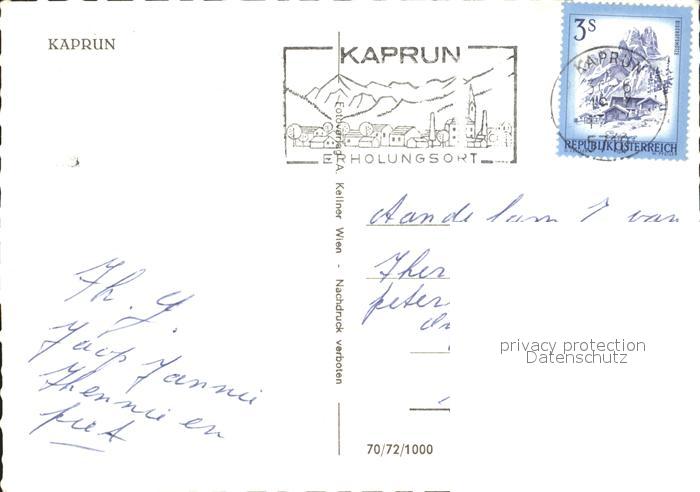 KAPRUN
KAPRUN
ERHOLUNGSORT
3S
KAPRUN
REPUBLIK ÖSTERREICH
Fotoverlag A. Kellner Wien - Nachdruck verboten
Aan de fam J van
Ther
peter
privacy protection
Datenschutz
Jaap Jannie
Thennie en
piet
70/72/1000